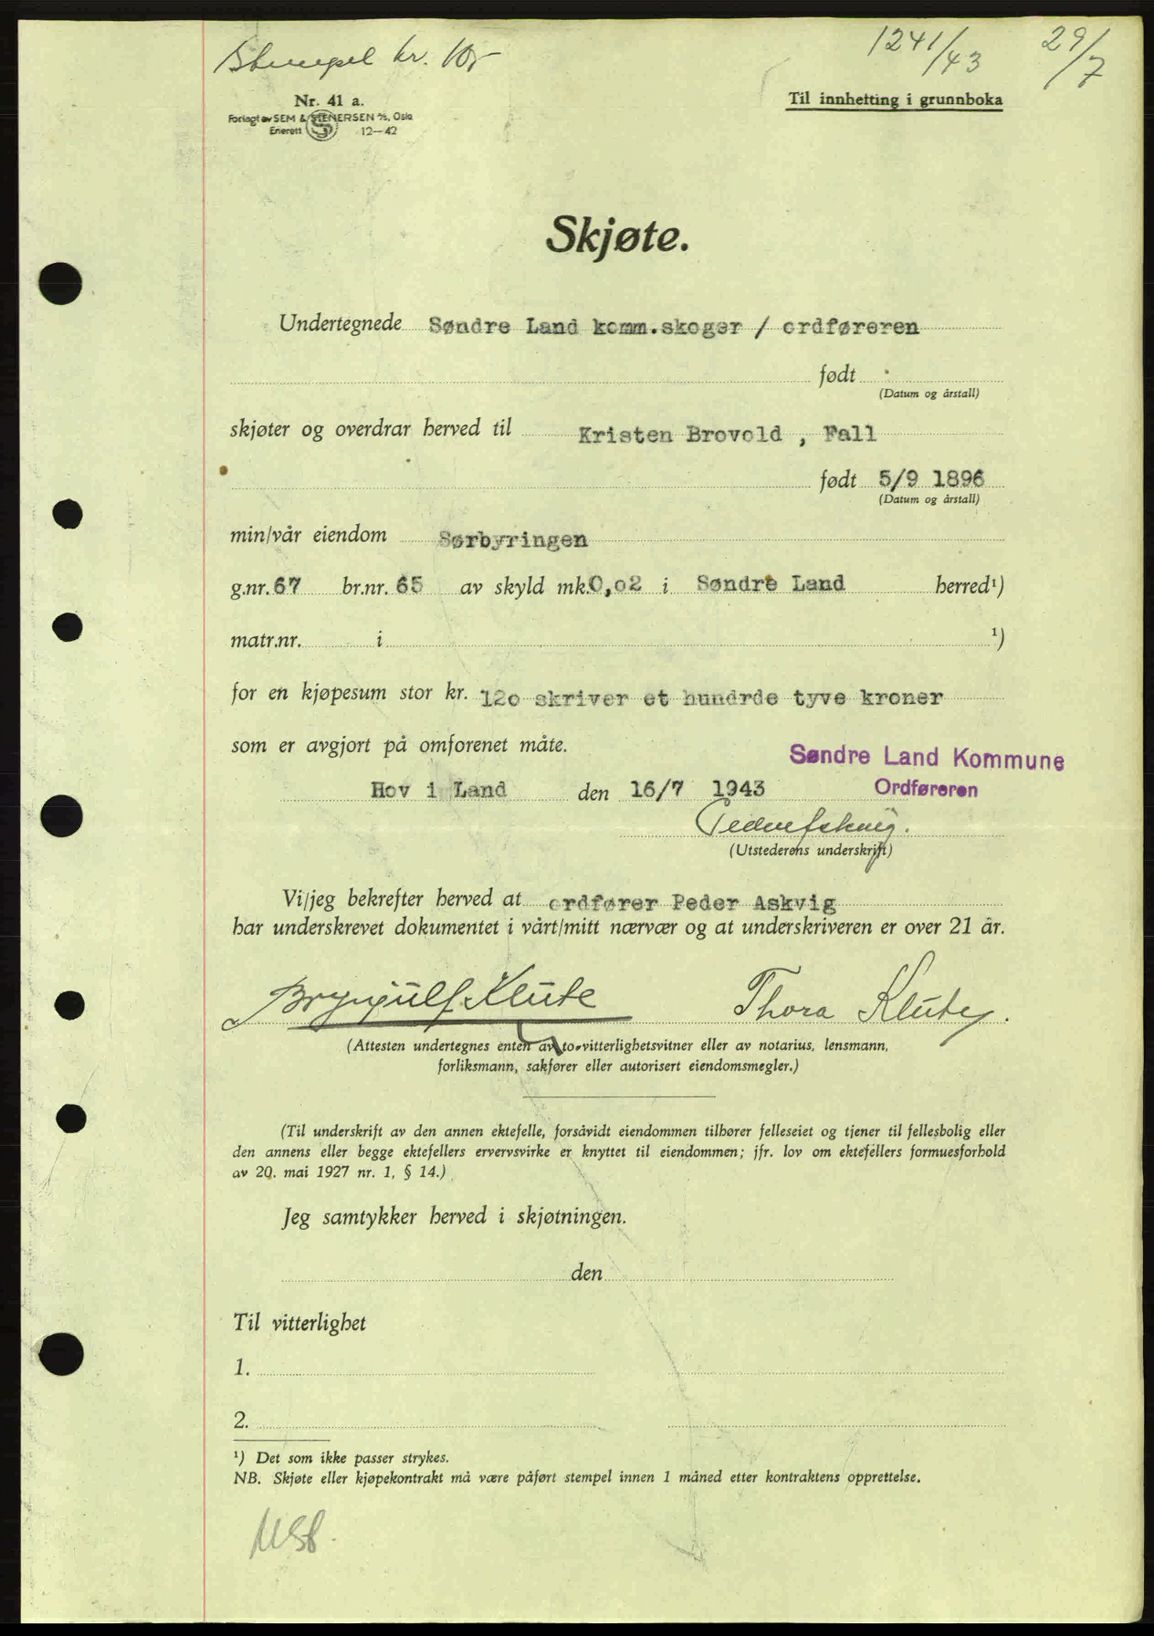 Stempel kr. 10,-
1241/43 29/7
Nr. 41 a.
Forlagt av SEM & STENERSEN A/S, Oslo
Enerett S 12-42
Til innhefting i grunnboka
Skjøte.
Undertegnede Søndre Land komm.skoger / ordføreren
født
(Datum og årstall)
skjøter og overdrar herved til Kristen Brovold , Fall
født 5/9 1896
(Datum og årstall)
min/vår eiendom Sørbyringen
g.nr. 67 br.nr. 65 av skyld mk. 0,o2 i Søndre Land herred¹)
matr.nr. i ¹)
for en kjøpesum stor kr. 12o skriver et hundrde tyve kroner
som er avgjort på omforenet måte.
Søndre Land Kommune
Hov i Land den 16/7 1943 Ordføreren
(Utstederens underskrift)
Vi/jeg bekrefter herved at ordfører Peder Askvig
har underskrevet dokumentet i vårt/mitt nærvær og at underskriveren er over 21 år.
Brynjulf Klute Thora Klute.
(Attesten undertegnes enten av to vitterlighetsvitner eller av notarius, lensmann,
forliksmann, sakfører eller autorisert eiendomsmegler.)
(Til underskrift av den annen ektefelle, forsåvidt eiendommen tilhører felleseiet og tjener til fellesbolig eller
den annens eller begge ektefellers ervervsvirke er knyttet til eiendommen; jfr. lov om ektefellers formuesforhold
av 20. mai 1927 nr. 1, § 14.)
Jeg samtykker herved i skjøtningen.
den
Til vitterlighet
1.
2.
¹) Det som ikke passer strykes.
NB. Skjøte eller kjøpekontrakt må være påført stempel innen 1 måned etter kontraktens opprettelse.